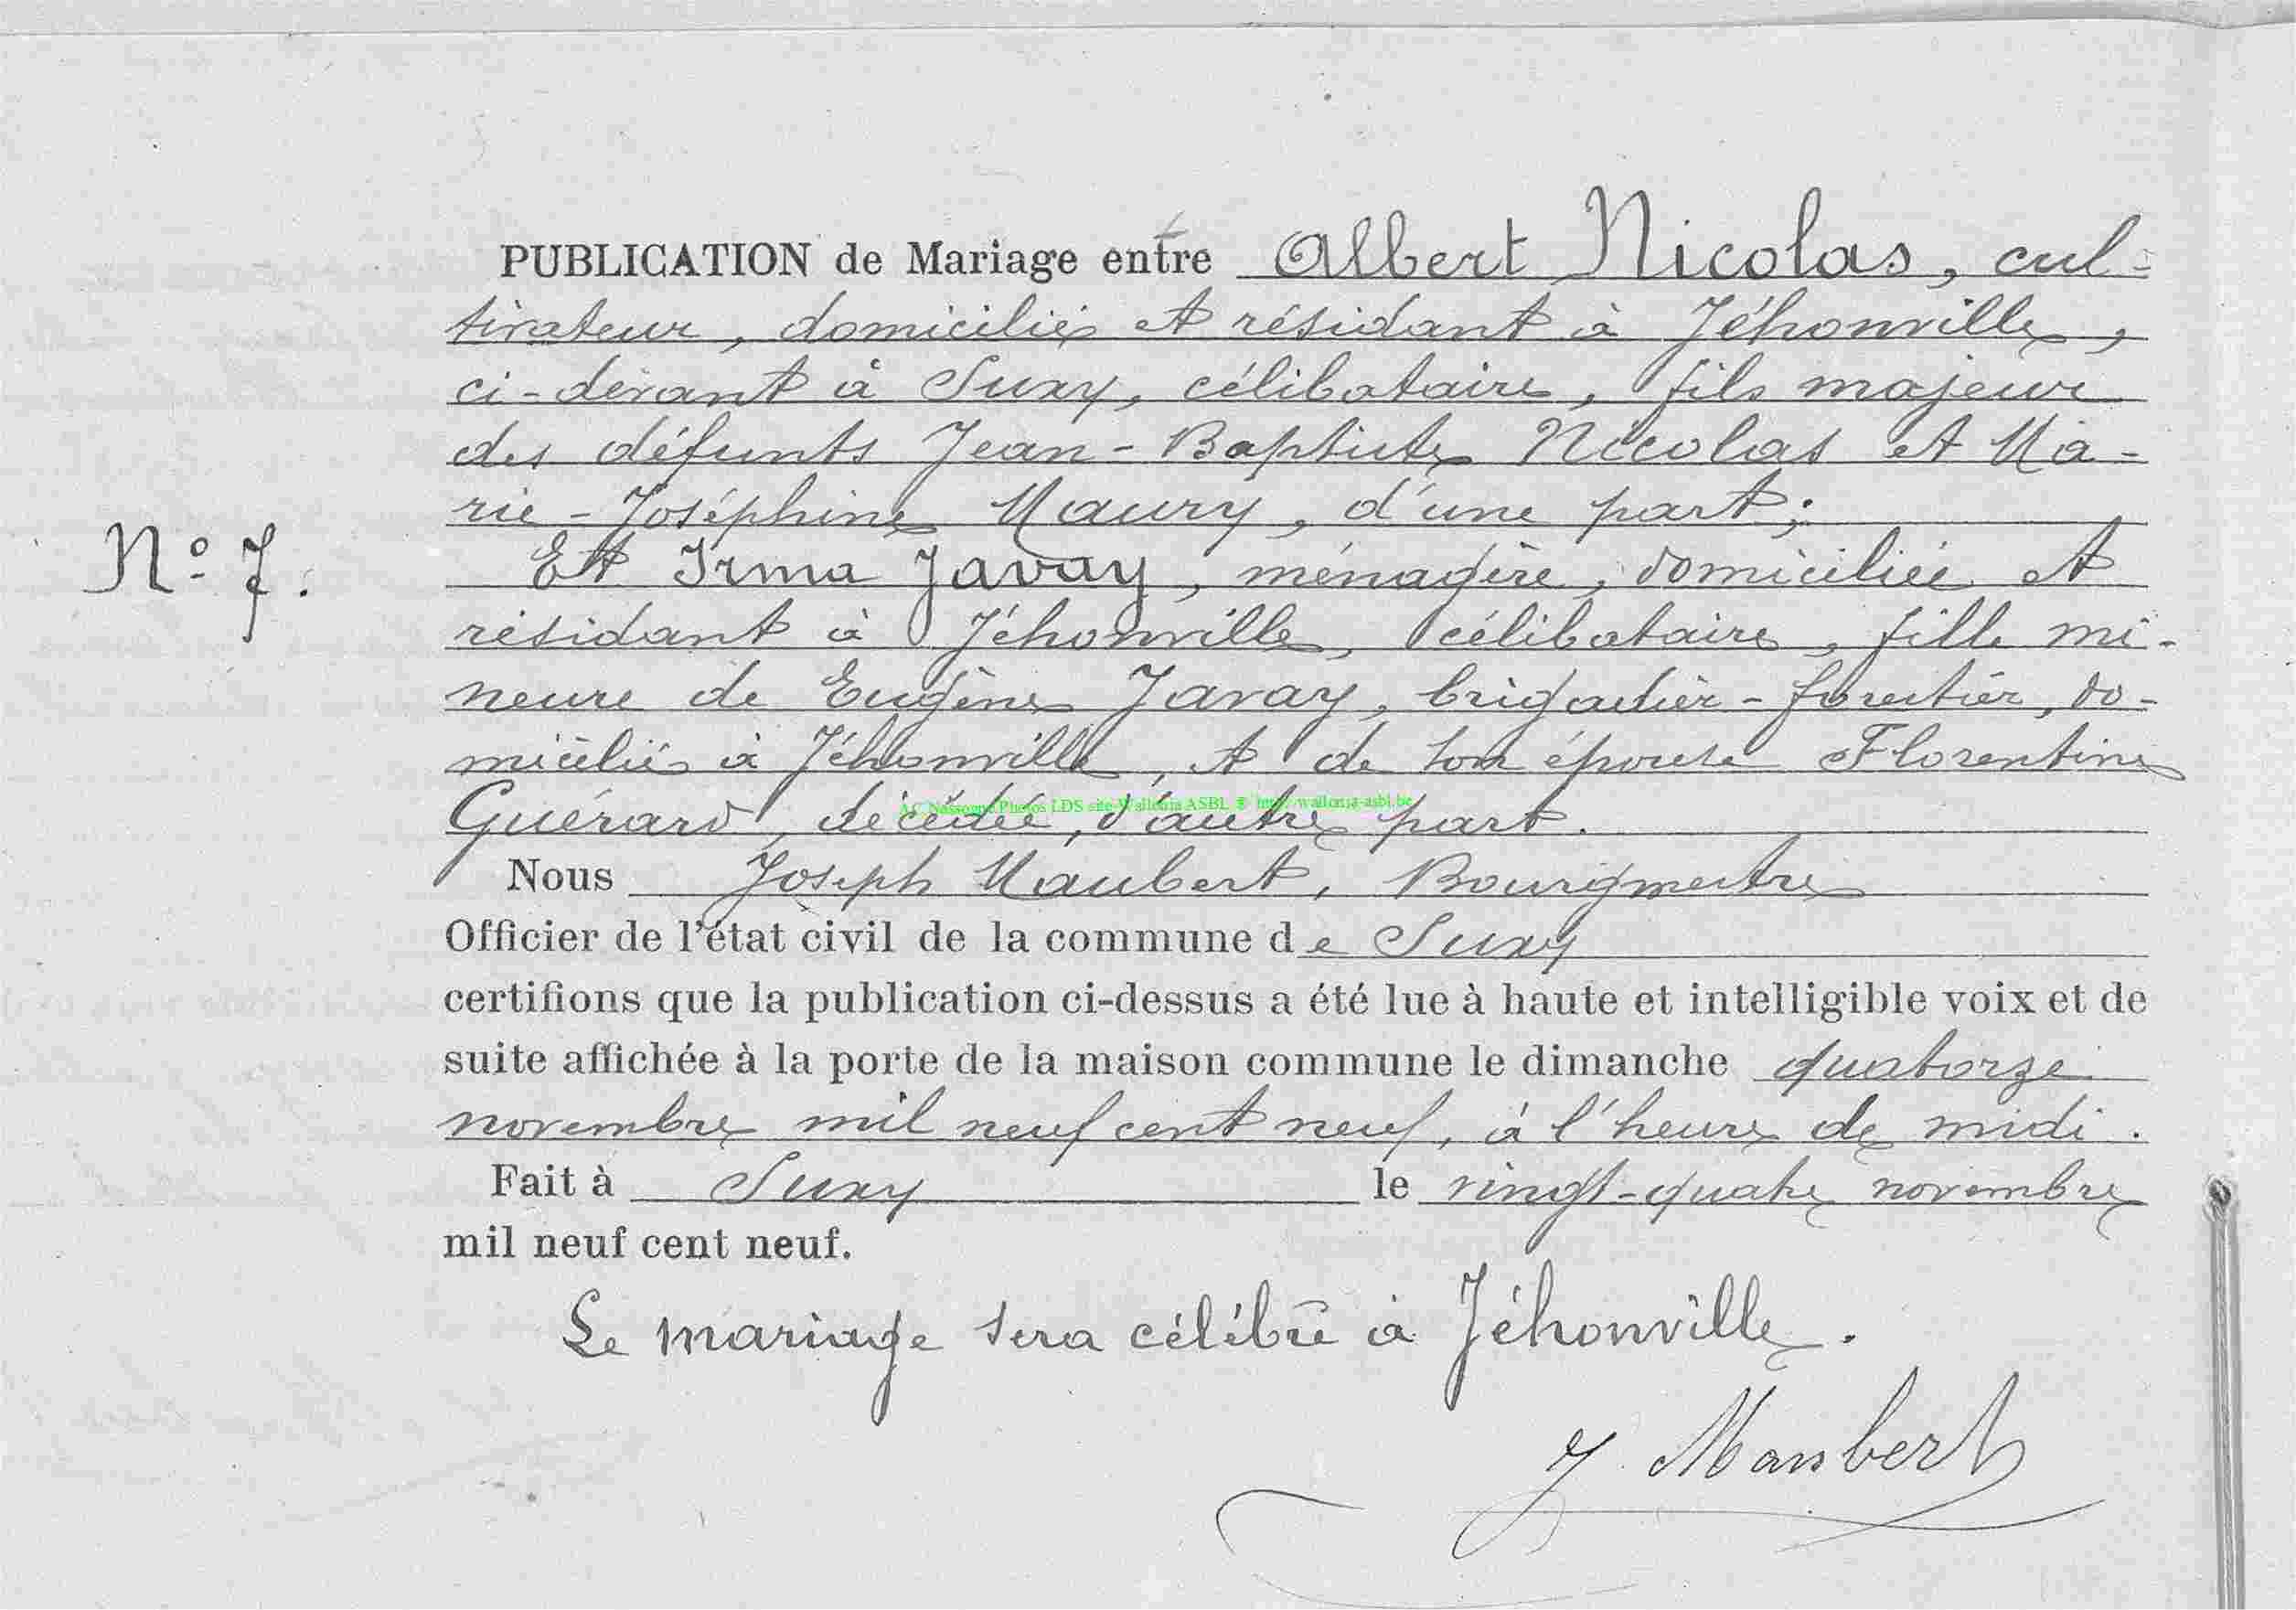 PUBLICATION de Mariage entre Albert Nicolas, cul-
tivateur, domicilié et résidant à Jéhonville,
ci-devant à Suxy, célibataire, fils majeur
des défunts Jean-Baptiste Nicolas et Ma-
rie-Joséphine Maury, d'une part;
N° 7.
Et Irma Javay, ménagère, domiciliée et
résidant à Jéhonville, célibataire, fille mi-
neure de Eugène Javay, brigadier-forestier, do-
micilié à Jéhonville, et de son épouse Florentine
AC Nassogne Photos LDS site Wallonia ASBL © http://wallonia-asbl.be
Guérard, décédée, d'autre part.
Nous Joseph Maubert, Bourgmestre
Officier de l'état civil de la commune de Suxy
certifions que la publication ci-dessus a été lue à haute et intelligible voix et de
suite affichée à la porte de la maison commune le dimanche quatorze
novembre mil neuf cent neuf, à l'heure de midi.
Fait à Suxy le vingt-quatre novembre
mil neuf cent neuf.
Le mariage sera célébré à Jéhonville.
J Maubert